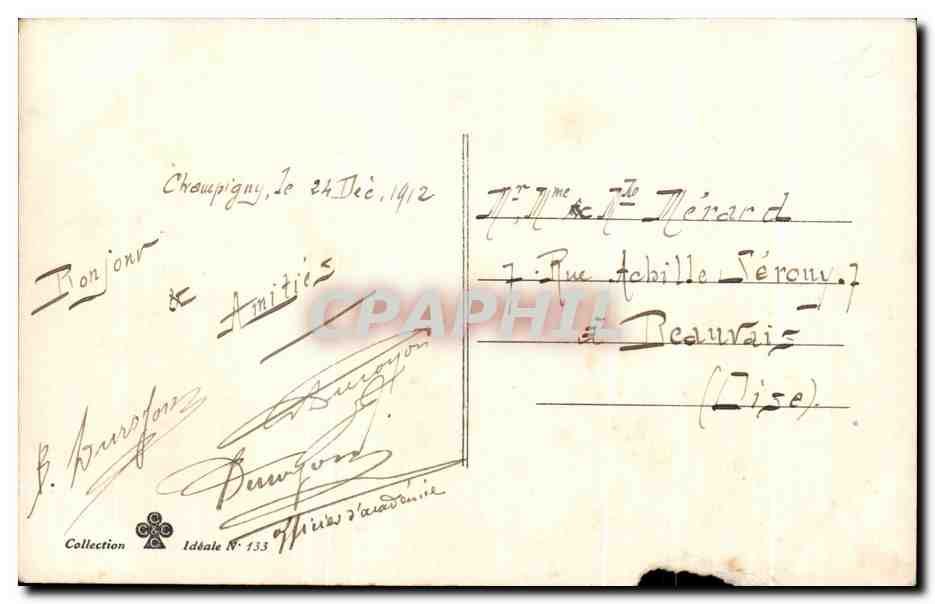 Champigny, le 24 Déc. 1912
Bonjour
& Amitiés
Duroyon
Duroyon
officier d'académie
Mr, Mme & Mlle Mérard
7. Rue Achille Sérouy. 7
à Beauvais
(Oise).
CPAPHIL
Collection CCCC Idéale N° 133